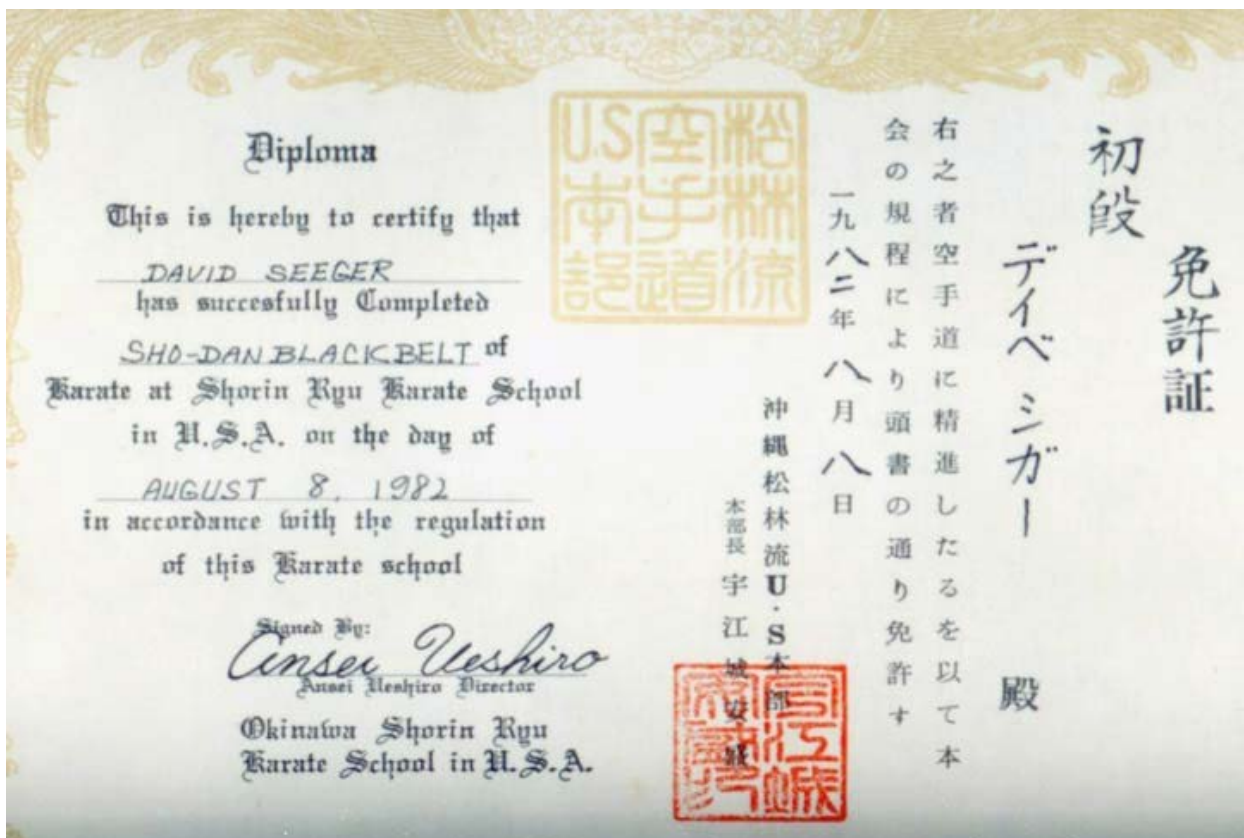 Diploma
This is hereby to certify that
DAVID SEEGER
has succesfully Completed
SHO-DAN BLACK BELT of
Karate at Shorin Ryu Karate School
in U.S.A. on the day of
AUGUST 8, 1982
in accordance with the regulation
of this Karate school
Signed By:
Ansei Ueshiro
Ansei Ueshiro Director
Okinawa Shorin Ryu
Karate School in U.S.A.
松林流
空手道
U.S本部
免許証
初段
デイベ シガー 殿
右之者空手道に精進したるを以て本
会の規程により頭書の通り免許す
一九八二年八月八日
沖縄松林流U.S本部
本部長 宇江城安盛